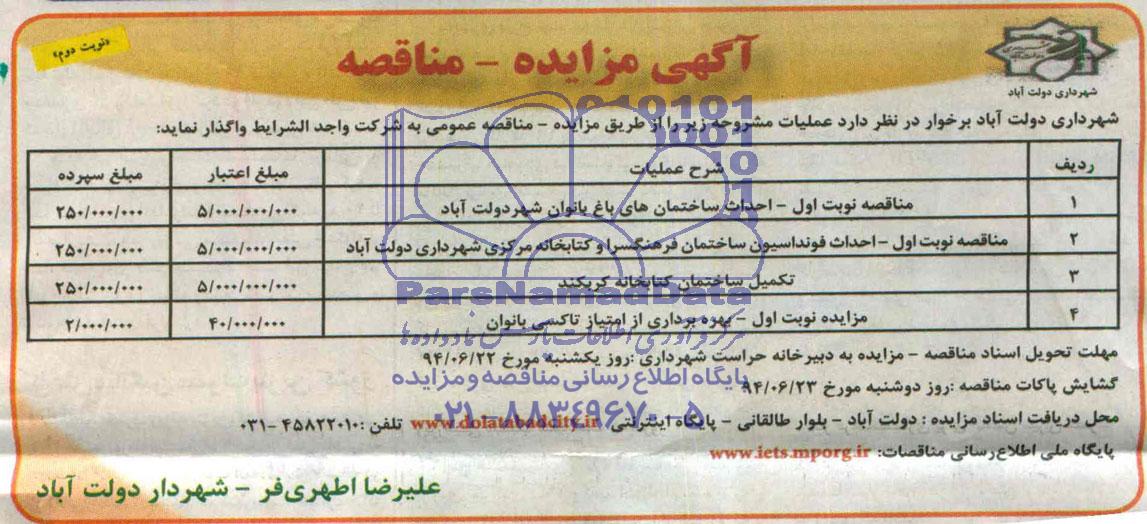 «نوبت دوم»
آگهی مزایده - مناقصه
شهرداری دولت آباد
شهرداری دولت آباد برخوار در نظر دارد عملیات مشروحه زیر را از طریق مزایده - مناقصه عمومی به شرکت واجد الشرایط واگذار نماید:
ردیف شرح عملیات مبلغ اعتبار مبلغ سپرده
۱ مناقصه نوبت اول - احداث ساختمان های باغ بانوان شهردولت آباد ۵/۰۰۰/۰۰۰/۰۰۰ ۲۵۰/۰۰۰/۰۰۰
۲ مناقصه نوبت اول - احداث فونداسیون ساختمان فرهنگسرا و کتابخانه مرکزی شهرداری دولت آباد ۵/۰۰۰/۰۰۰/۰۰۰ ۲۵۰/۰۰۰/۰۰۰
۳ تکمیل ساختمان کتابخانه کربکند ۵/۰۰۰/۰۰۰/۰۰۰ ۲۵۰/۰۰۰/۰۰۰
۴ مزایده نوبت اول - بهره برداری از امتیاز تاکسی بانوان ۴۰/۰۰۰/۰۰۰ ۲/۰۰۰/۰۰۰
مهلت تحویل اسناد مناقصه - مزایده به دبیرخانه حراست شهرداری :روز یکشنبه مورخ ۹۴/۰۶/۲۲
گشایش پاکات مناقصه :روز دوشنبه مورخ ۹۴/۰۶/۲۳
محل دریافت اسناد مزایده : دولت آباد - بلوار طالقانی - پایگاه اینترنتی www.dolatabadcity.ir تلفن :۰۳۱-۴۵۸۲۲۰۱۰
پایگاه ملی اطلاع رسانی مناقصات: www.iets.mporg.ir
علیرضا اطهری‌فر - شهردار دولت آباد
ParsNamadData
مرکز فرآوری اطلاعات پارس نماد داده ها
پایگاه اطلاع رسانی مناقصه و مزایده
۰۲۱-۸۸۳۴۹۶۷۰-۵